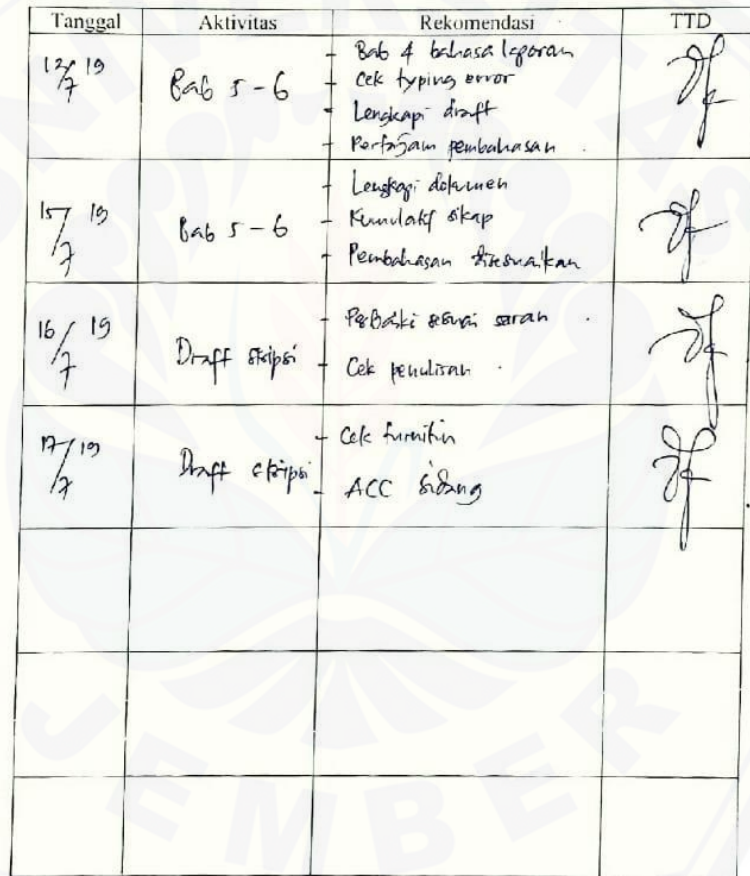 Tanggal Aktivitas Rekomendasi TTD
12/7 19 Bab 5 - 6 - Bab 4 bahasa laporan
- Cek typing error
- Lengkapi draft
- Pertajam pembahasan
15/7 19 Bab 5 - 6 - Lengkapi dokumen
- Kumulatif sikap
- Pembahasan disesuaikan
16/7 19 Draft skripsi - Perbaiki sesuai saran
- Cek penulisan
17/7 19 Draft skripsi - Cek turnitin
- ACC sidang
UNIVERSITAS
JEMBER